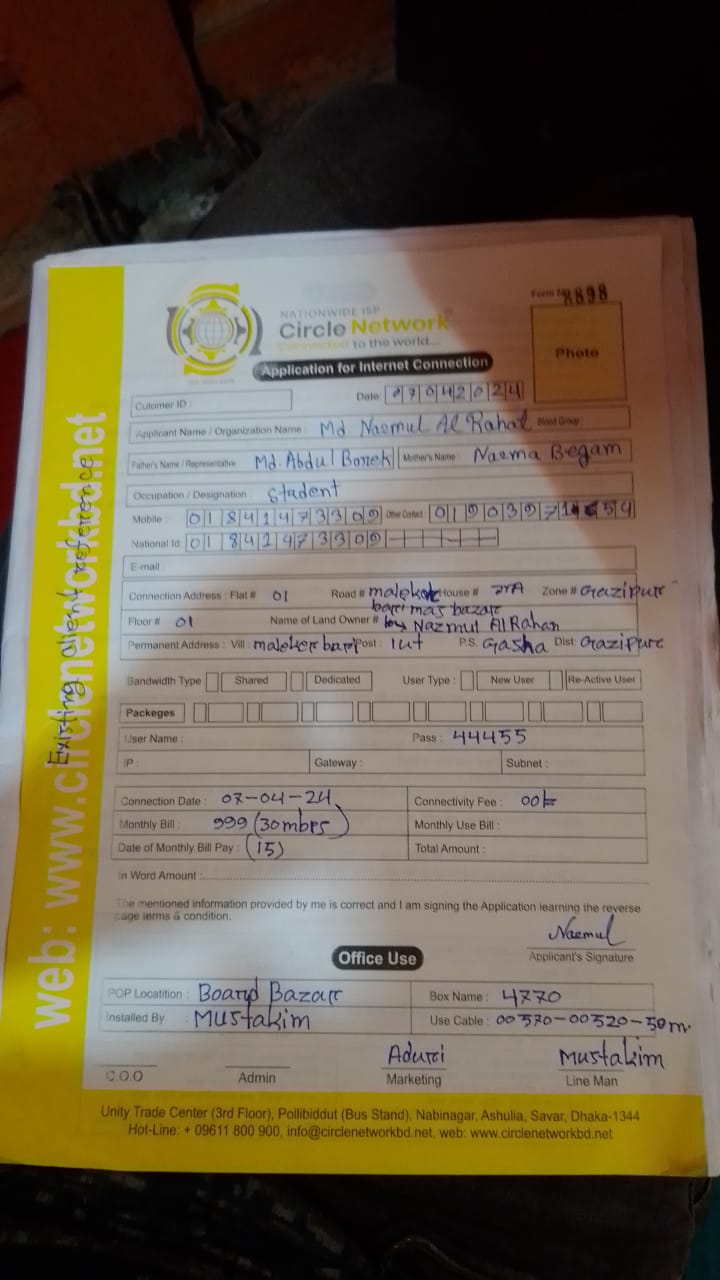 Form No 8898
NATIONWIDE ISP
Circle Network
Connected to the world...
Photo
Application for Internet Connection
Date 07042024
Cutomer ID :
Applicant Name / Organization Name : Md Naemul Al Rahat Blood Group :
Father's Name / Representative Md. Abdul Barek Mother's Name : Naema Begam
Occupation / Designation Student
Mobile : 01841473309 Other Contact 0190397
National Id: 01841473309
E-mail :
Connection Address : Flat # 01 Road # House # Zone # Gazipure
bari mas bazar
Floor # 01 Name of Land Owner # Nazmul Al Rahan
Permanent Address : Vill : maleker bari Post : iut P.S. Gasha Dist: Gazipure
Bandwidth Type Shared Dedicated User Type : New User Re-Active User
Packeges
User Name : Pass : 44455
IP : Gateway : Subnet :
Connection Date : 07-04-24 Connectivity Fee : 00
Monthly Bill : 999 (30mbps) Monthly Use Bill :
Date of Monthly Bill Pay : (15) Total Amount :
In Word Amount :
The mentioned information provided by me is correct and I am signing the Application learning the reverse
page terms & condition.
Naemul
Applicant's Signature
Office Use
POP Locatition : Board Bazar Box Name : 4770
Installed By : Mustakim Use Cable : 00570-00520-50m.
Aduri Mustakim
C.O.O Admin Marketing Line Man
Unity Trade Center (3rd Floor), Pollibiddut (Bus Stand), Nabinagar, Ashulia, Savar, Dhaka-1344
Hot-Line: + 09611 800 900, info@circlenetworkbd.net, web: www.circlenetworkbd.net
web: www.circlenetworkbd.net
Existing client reference